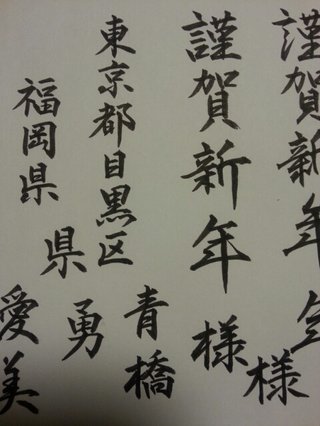 謹賀新年
様
謹賀新年
様
東京都目黒区
青橋
県
勇
福岡県
愛美